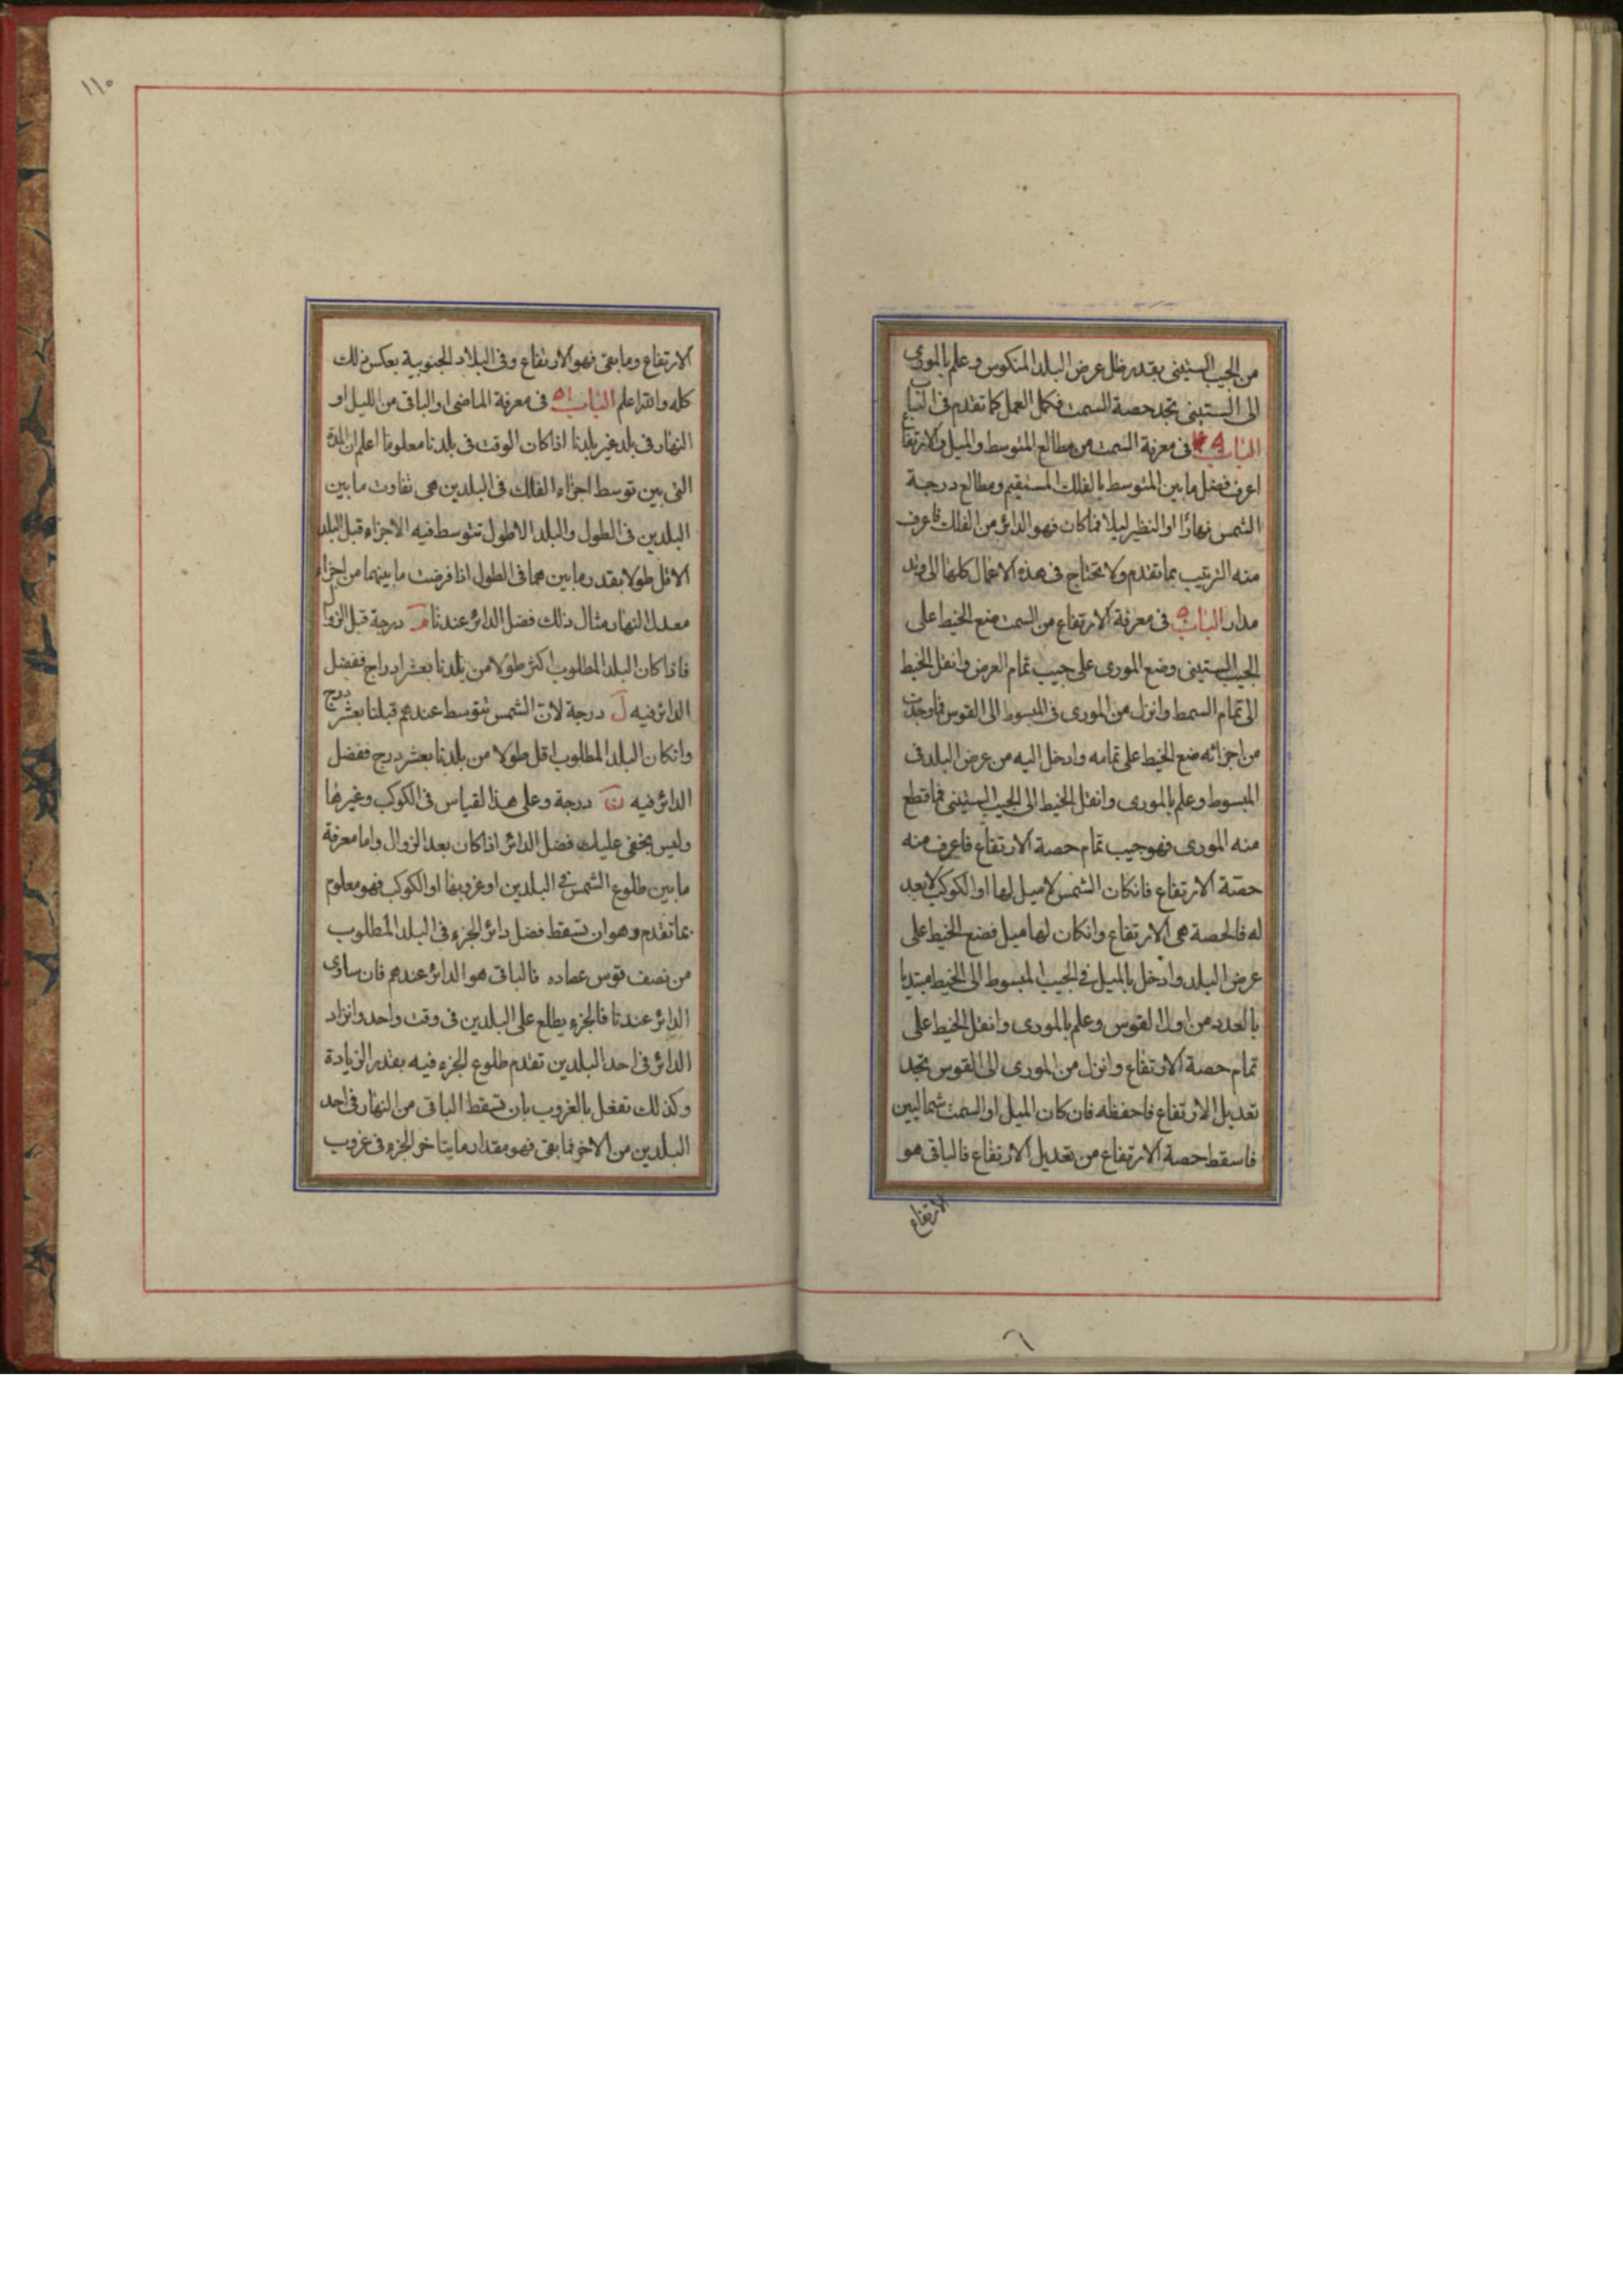 من الجيب الستيني بقدر ظل عرض البلد المنكوس وعلم بالمورى
الى الستيني تجد حصة السمت فكمل العمل كما تقدم فى الباب
الباب ٤٩ فى معرفة السمت من مطالع المتوسط والميل والارتفاع
اعرف فضل ما بين المتوسط بالفلك المستقيم ومطالع درجة
الشمس نهارًا او النظير ليلا فما كان فهو الدائر من الفلك فاعرف
منه الترتيب بما تقدم ولا تحتاج فى هذه الاعمال كلها الى
مدار الباب ٥٠ فى معرفة الارتفاع من السمت ضع الخيط على
الجيب الستيني وضع المورى على جيب تمام العرض وانقل الخيط
الى تمام السمط وانزل من المورى فى المبسوط الى القوس فما وجدت
من اجزائه ضع الخيط على تمامه وادخل اليه من عرض البلد فى
المبسوط وعلم بالمورى وانقل الخيط الى الجيب الستيني فما قطع
منه المورى فهو جيب تمام حصة الارتفاع فاعرف منه
حصة الارتفاع فان كان الشمس لا ميل لها او الكوكب لا بعد
له فالحصة هى الارتفاع وان كان لها ميل فضع الخيط على
عرض البلد وادخل بالميل فى الجيب المبسوط الى الخيط مبتديا
بالعدد من اول القوس وعلم بالمورى وانقل الخيط على
تمام حصة الارتفاع وانزل من المورى الى القوس تجد
تعديل الارتفاع فاحفظه فان كان الميل او السمت شماليين
فاسقط حصة الارتفاع من تعديل الارتفاع فالباقى هو
الارتفاع
١١٠
الارتفاع وما بقى فهو الارتفاع وفى البلاد الجنوبية بعكس ذلك
كله والله اعلم الباب ٥١ فى معرفة الماضى او الباقى من الليل او
النهار فى بلد غير بلدنا اذا كان الوقت فى بلدنا معلوما اعلم ان المدة
التى بين توسط اجزاء الفلك فى البلدين هى تفاوت ما بين
البلدين فى الطول والبلد الاطول تتوسط فيه الاجزاء قبل البلد
الاقل طولا بقدر ما بين هما فى الطول اذا فرضت ما بينهما من اجزاء
معدل النهار مثال ذلك فضل الدائر عندنا م درجة قبل الزوال
فاذا كان البلد المطلوب اكثر طولا من بلدنا بعشر ادراج ففضل
الدائر فيه ل درجة لان الشمس تتوسط عندهم قبلنا بعشر درج
وان كان البلد المطلوب اقل طولا من بلدنا بعشر درج ففضل
الدائر فيه ن درجة وعلى هذا لقياس فى الكوكب وغيرها
وليس يخفى عليك فضل الدائر اذا كان بعد الزوال واما معرفة
ما بين طلوع الشمس فى البلدين او غروبها او الكوكب فهو معلوم
بما تقدم وهو ان تسقط فضل دائر الجزء فى البلد المطلوب
من نصف قوس عنده فالباقى هو الدائر عندهم فان ساوى
الدائر عندنا فالجزء يطلع على البلدين فى وقت واحد وان زاد
الدائر فى احد البلدين تقدم طلوع الجزء فيه بقدر الزيادة
وكذلك تفعل بالغروب بان تسقط الباقى من النهار فى احد
البلدين من الاخر فما بقى فهو مقدار ما يتاخر الجزء فى غروب